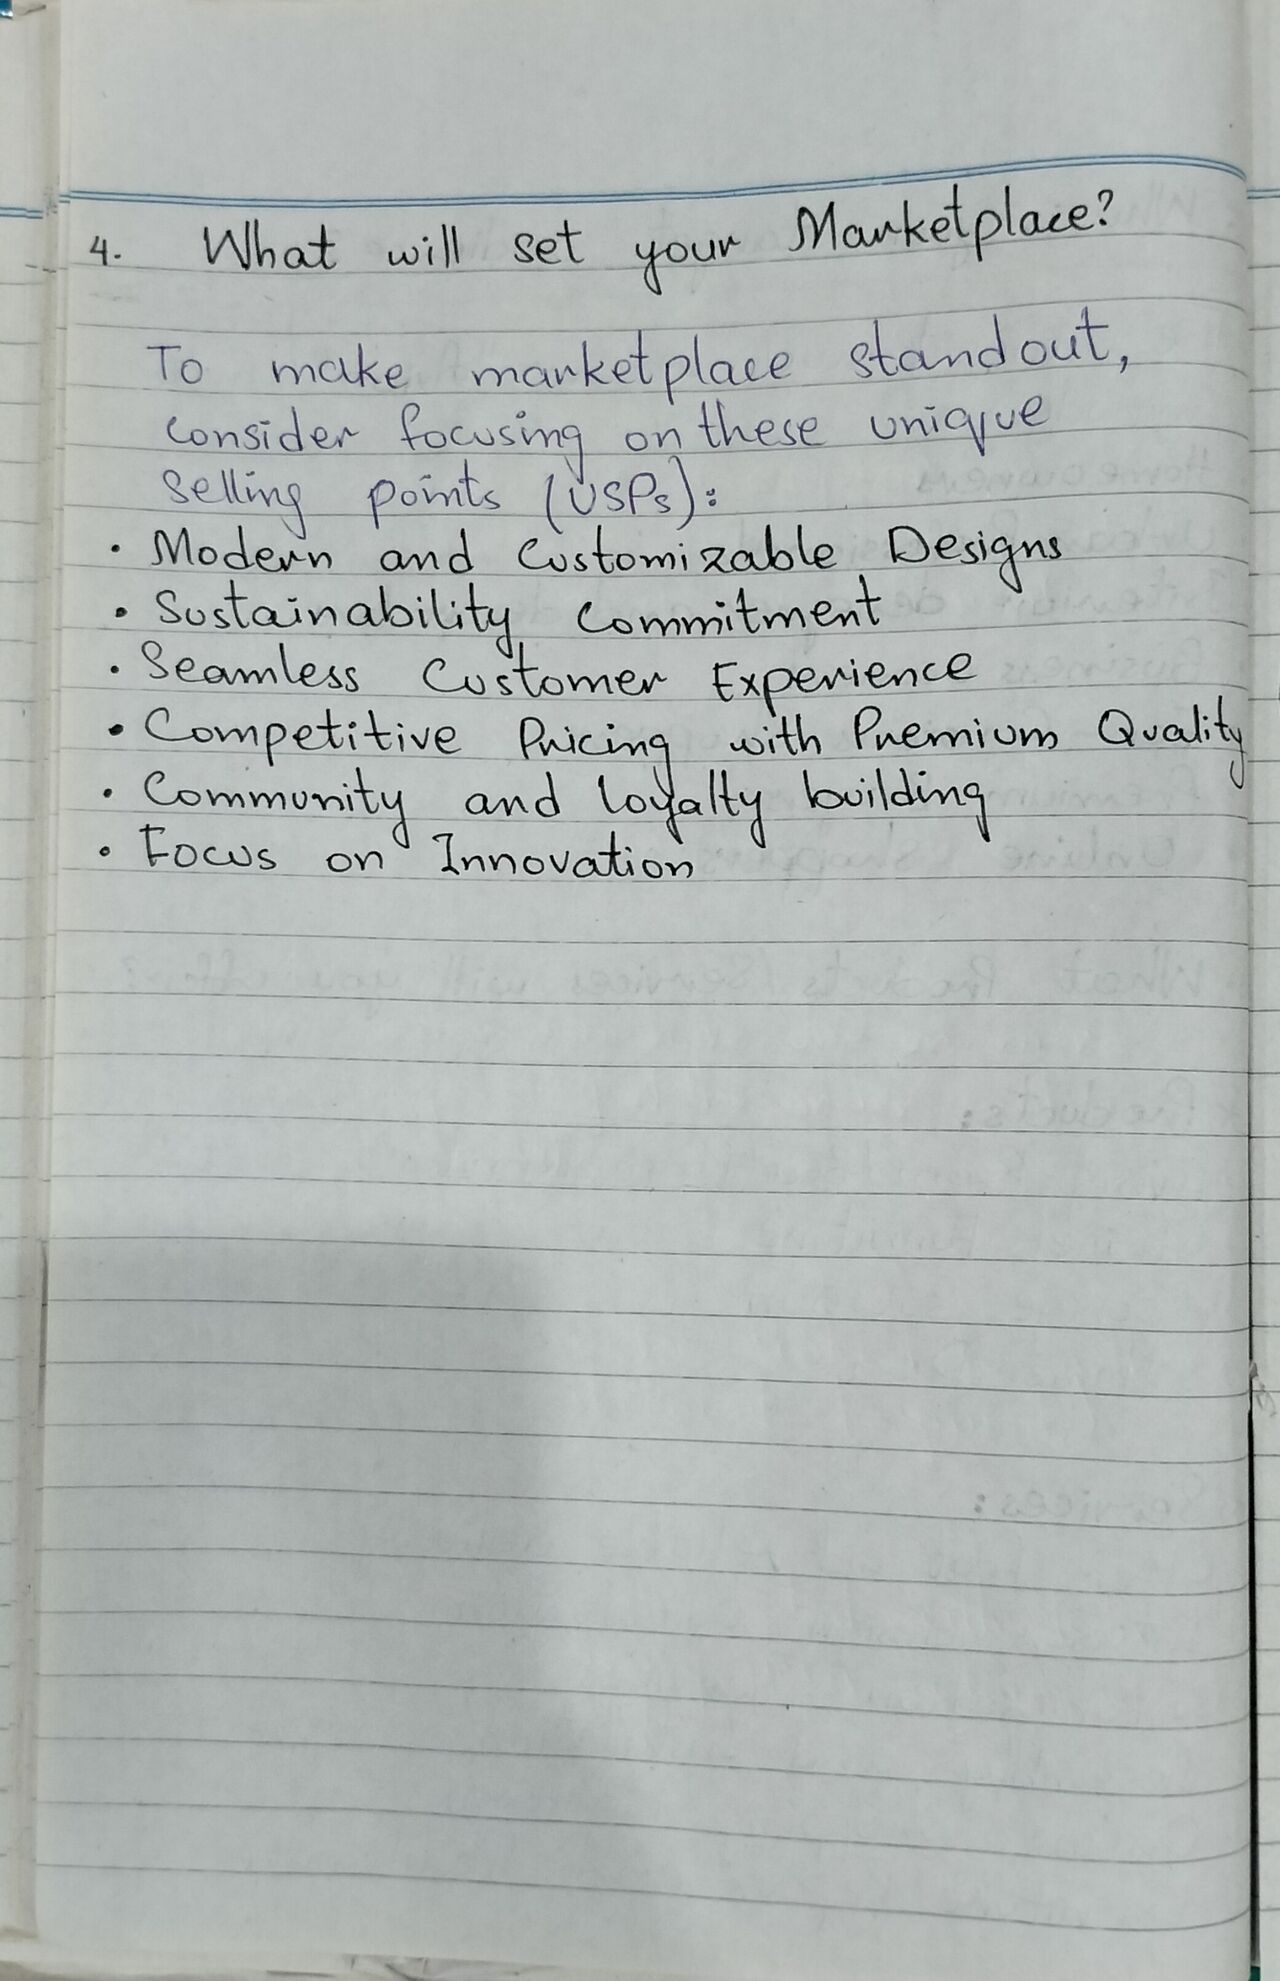 4. What will set your Marketplace?
To make marketplace standout,
consider focusing on these unique
selling points (USPs):
• Modern and Customizable Designs
• Sustainability Commitment
• Seamless Customer Experience
• Competitive Pricing with Premium Quality
• Community and loyalty building
• Focus on Innovation